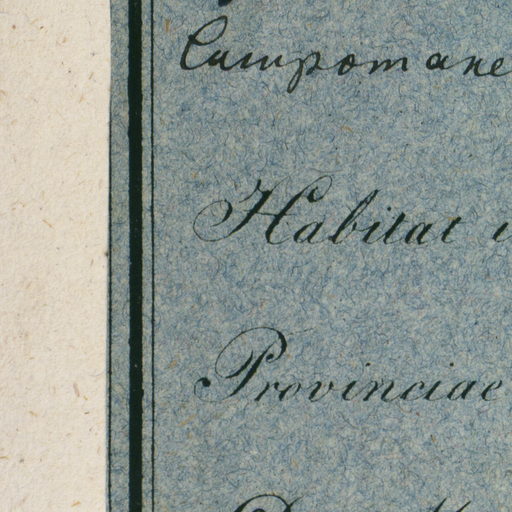 Campomane
Habitat i
Provinciae